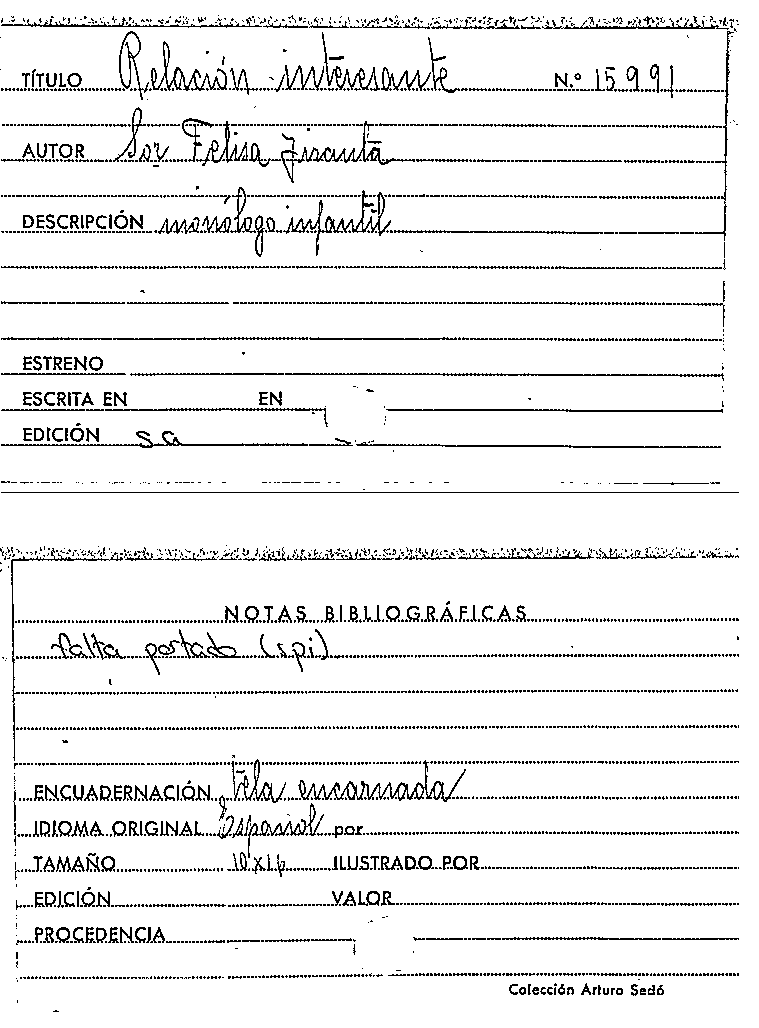 TÍTULO Relación interesante N.º 15991
AUTOR Sor Felisa Jiranta
DESCRIPCIÓN monólogo infantil
ESTRENO
ESCRITA EN EN
EDICIÓN sa
NOTAS BIBLIOGRÁFICAS
falta portada (spi)
ENCUADERNACIÓN tela encarnada
IDIOMA ORIGINAL Español por
TAMAÑO 10x16 ILUSTRADO POR
EDICIÓN VALOR
PROCEDENCIA
Colección Arturo Sedó